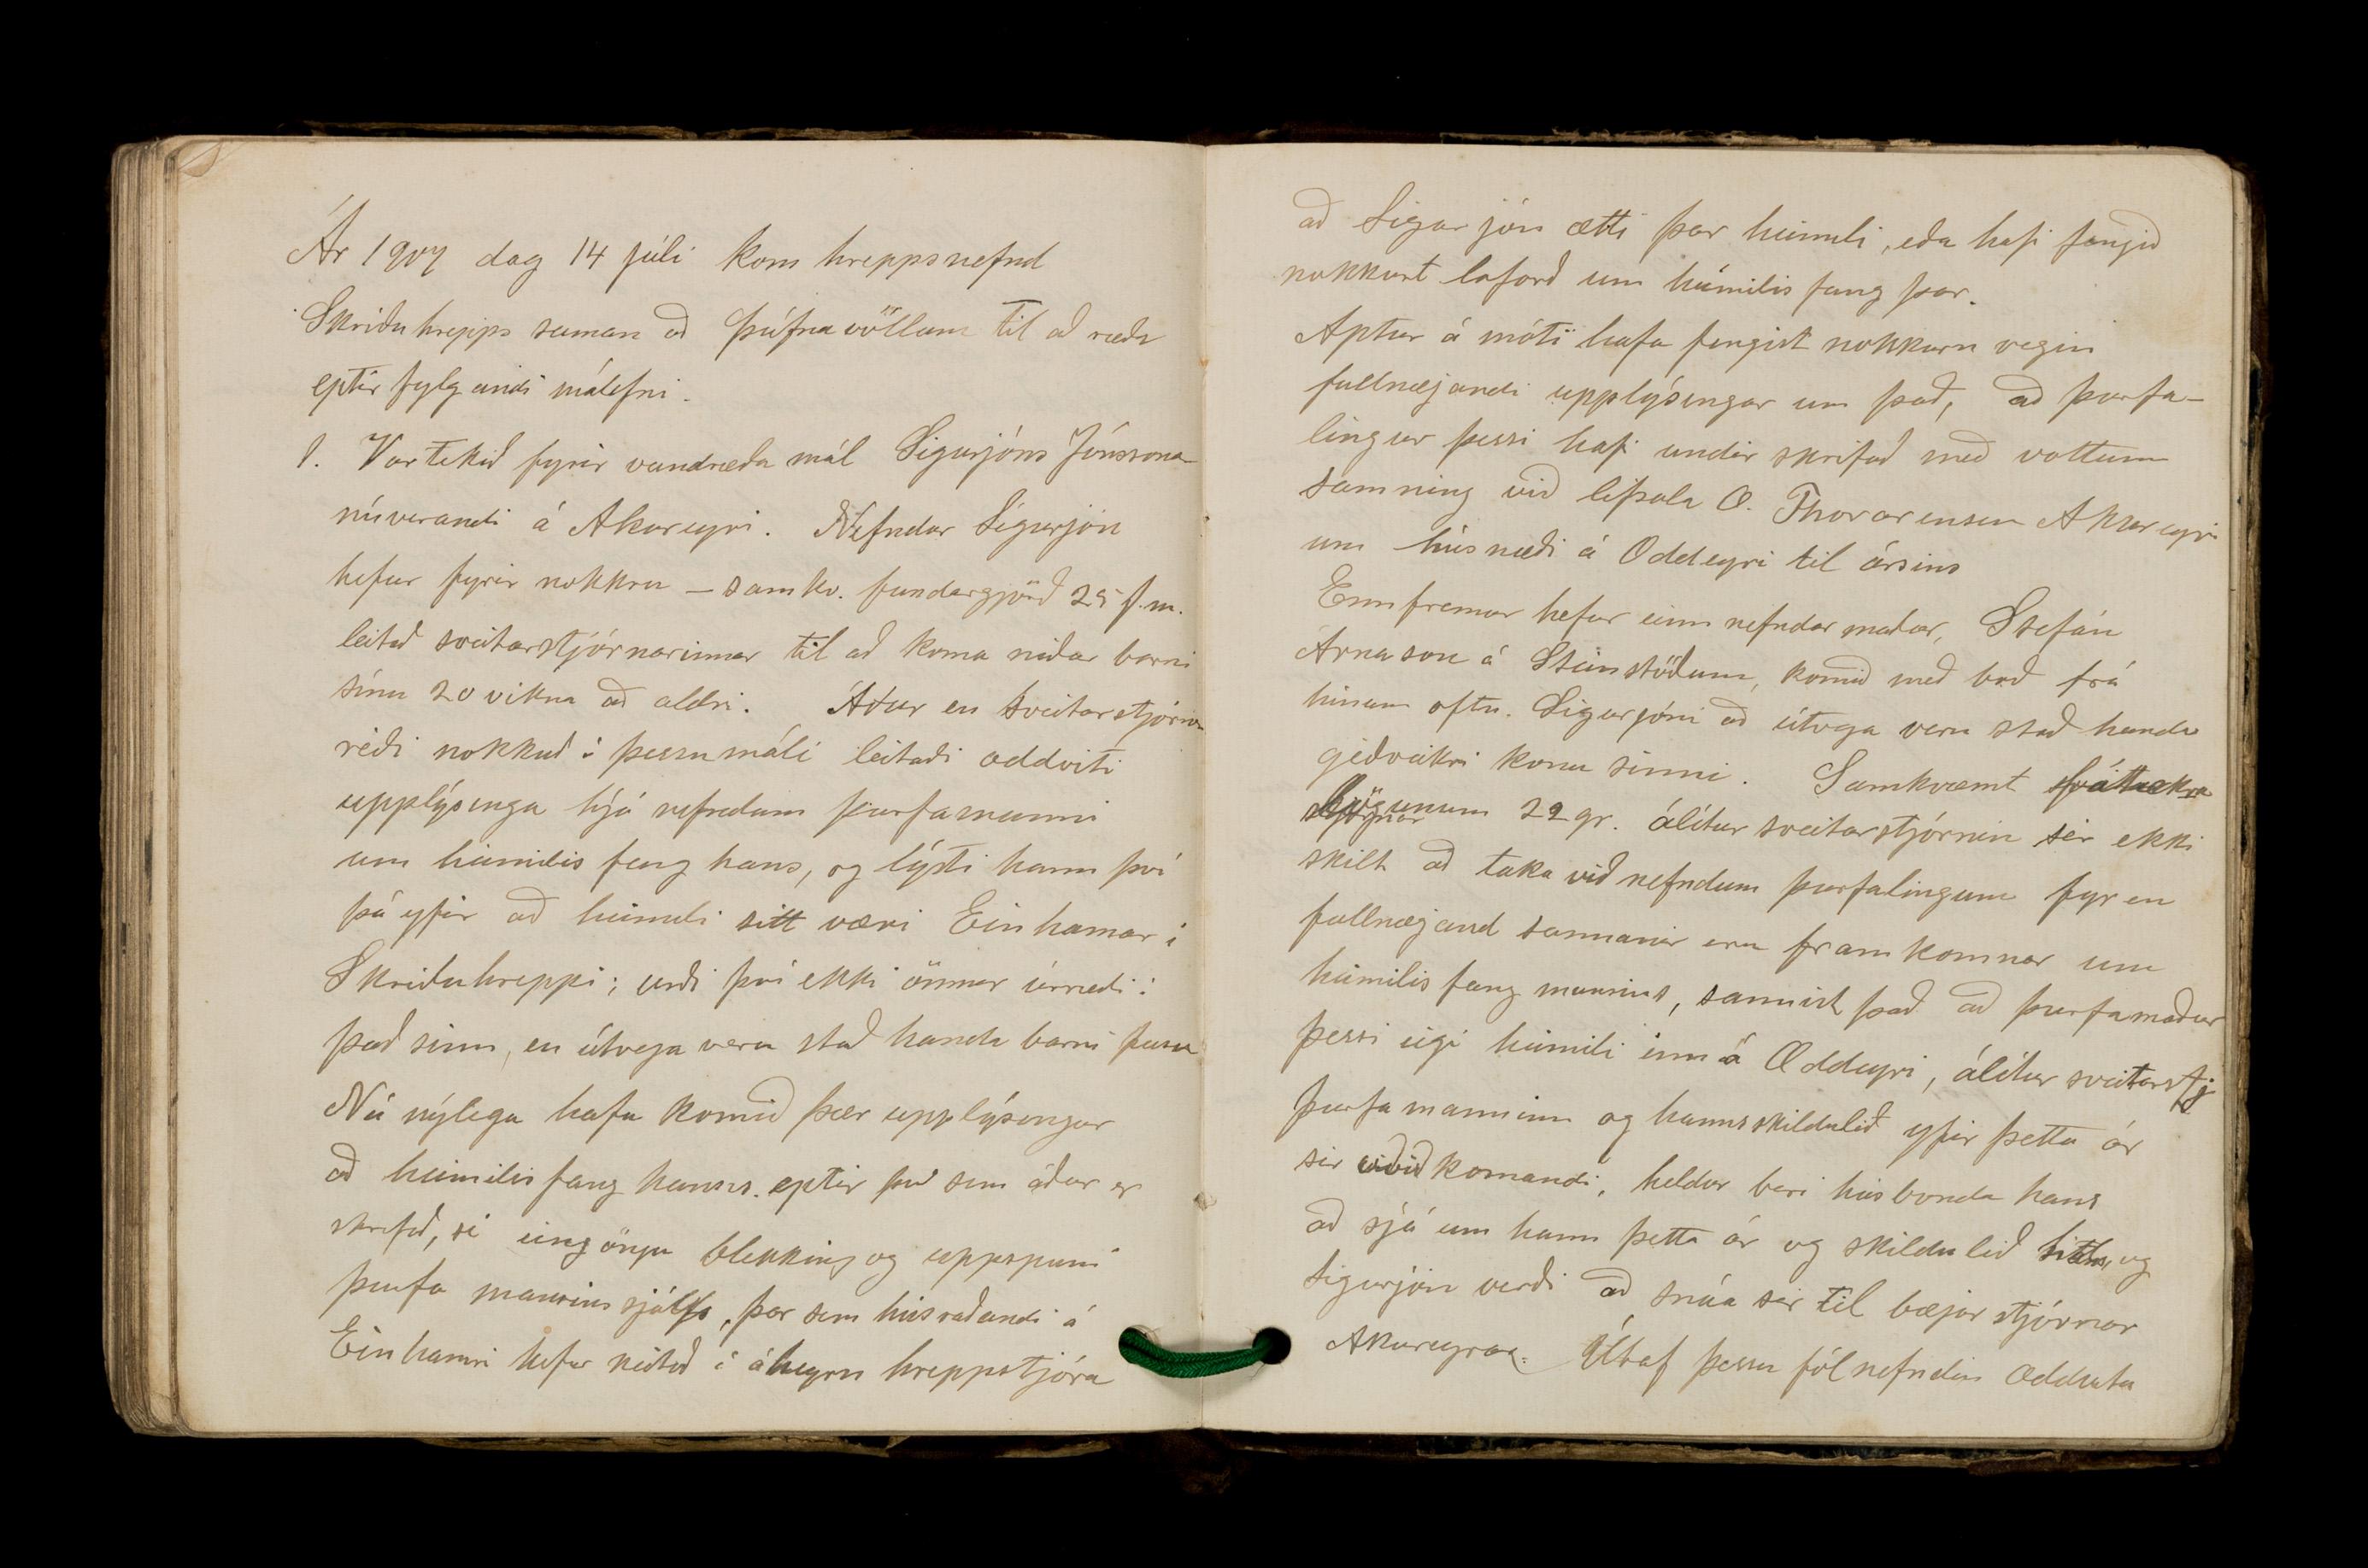 Ár 1907 dag 14 júlí kom hreppsnefnd
Skriðuhrepps saman að Þúfnavöllum til að ræða
eptirfylgjandi málefni.
1. Var tekið fyrir vandræða mál Sigurjóns Jónssonar
núverandi á Akureyri. Nefndur Sigurjón
hefur fyrir nokkru – samkv. fundargjörð 25 f.m.
leitað sveitarstjórnarinnar til að koma niður barni
sínu 20 vikna að aldri. Áður en sveitarstjórnin
réði nokkuð í þessu máli leitaði oddviti
upplýsinga hjá nefndum þurfamanni
um heimilis fang hans, og lýsti hann því
þá yfir að heimili sitt væri Einhamar í
Skriðuhreppi; urði því ekki önnur úrræði í
það sinn, en útvega veru stað handa barni þessu
Nú nýlega hafa komið þær upplýsingar
að heimilisfang hanns. eptir því sem áður er
skrifað, sé eingöngu blekking og uppspuni
þurfa mannsins sjálfs, þar sem húsráðandi á
Einhamri hefur neitað í áheyrn hreppstjóra
að Sigurjón ætti þar heimili, eða hafi fengið
nokkurt loforð um heimilis fang þar.
Aptur á móti hafa fengist nokkurn vegin
fullnægjandi upplýsingar um það, að þurfa-
lingur þessi hafi undir skrifað með vottum
samning við lifsala O. Thorarensen Akureyri
um húsnæði á Oddeyri til ársins
Ennfremur hefur einn nefndar maður, Stefán
Árnason á Steinstöðum, komið með boð frá
hinum oftn. Sigurjóni að útvega veru stað handa
geðveikri konu sinni. Samkvæmt fátækra
lögunum 22 gr. álítur sveitarstjórnin sér ekki
skilt að taka við nefndum þurfalingum fyr en
fullnægjand sannanir eru framkomnar um
heimilis fang mannsins, sannist það að þurfamaður
þessi eigi heimili inn á Oddeyri, álítur sveitarstj
þurfa manninn og hanns skildulið yfir þetta ár
sér óviðkomandi, heldur beri húsbonda hans
að sjá um hann þetta ár og skildulið hans, og
Sigurjón verði að snúa sér til bæjar stjórnar
Akureyrar. Útaf þessu fól nefndin Oddvita